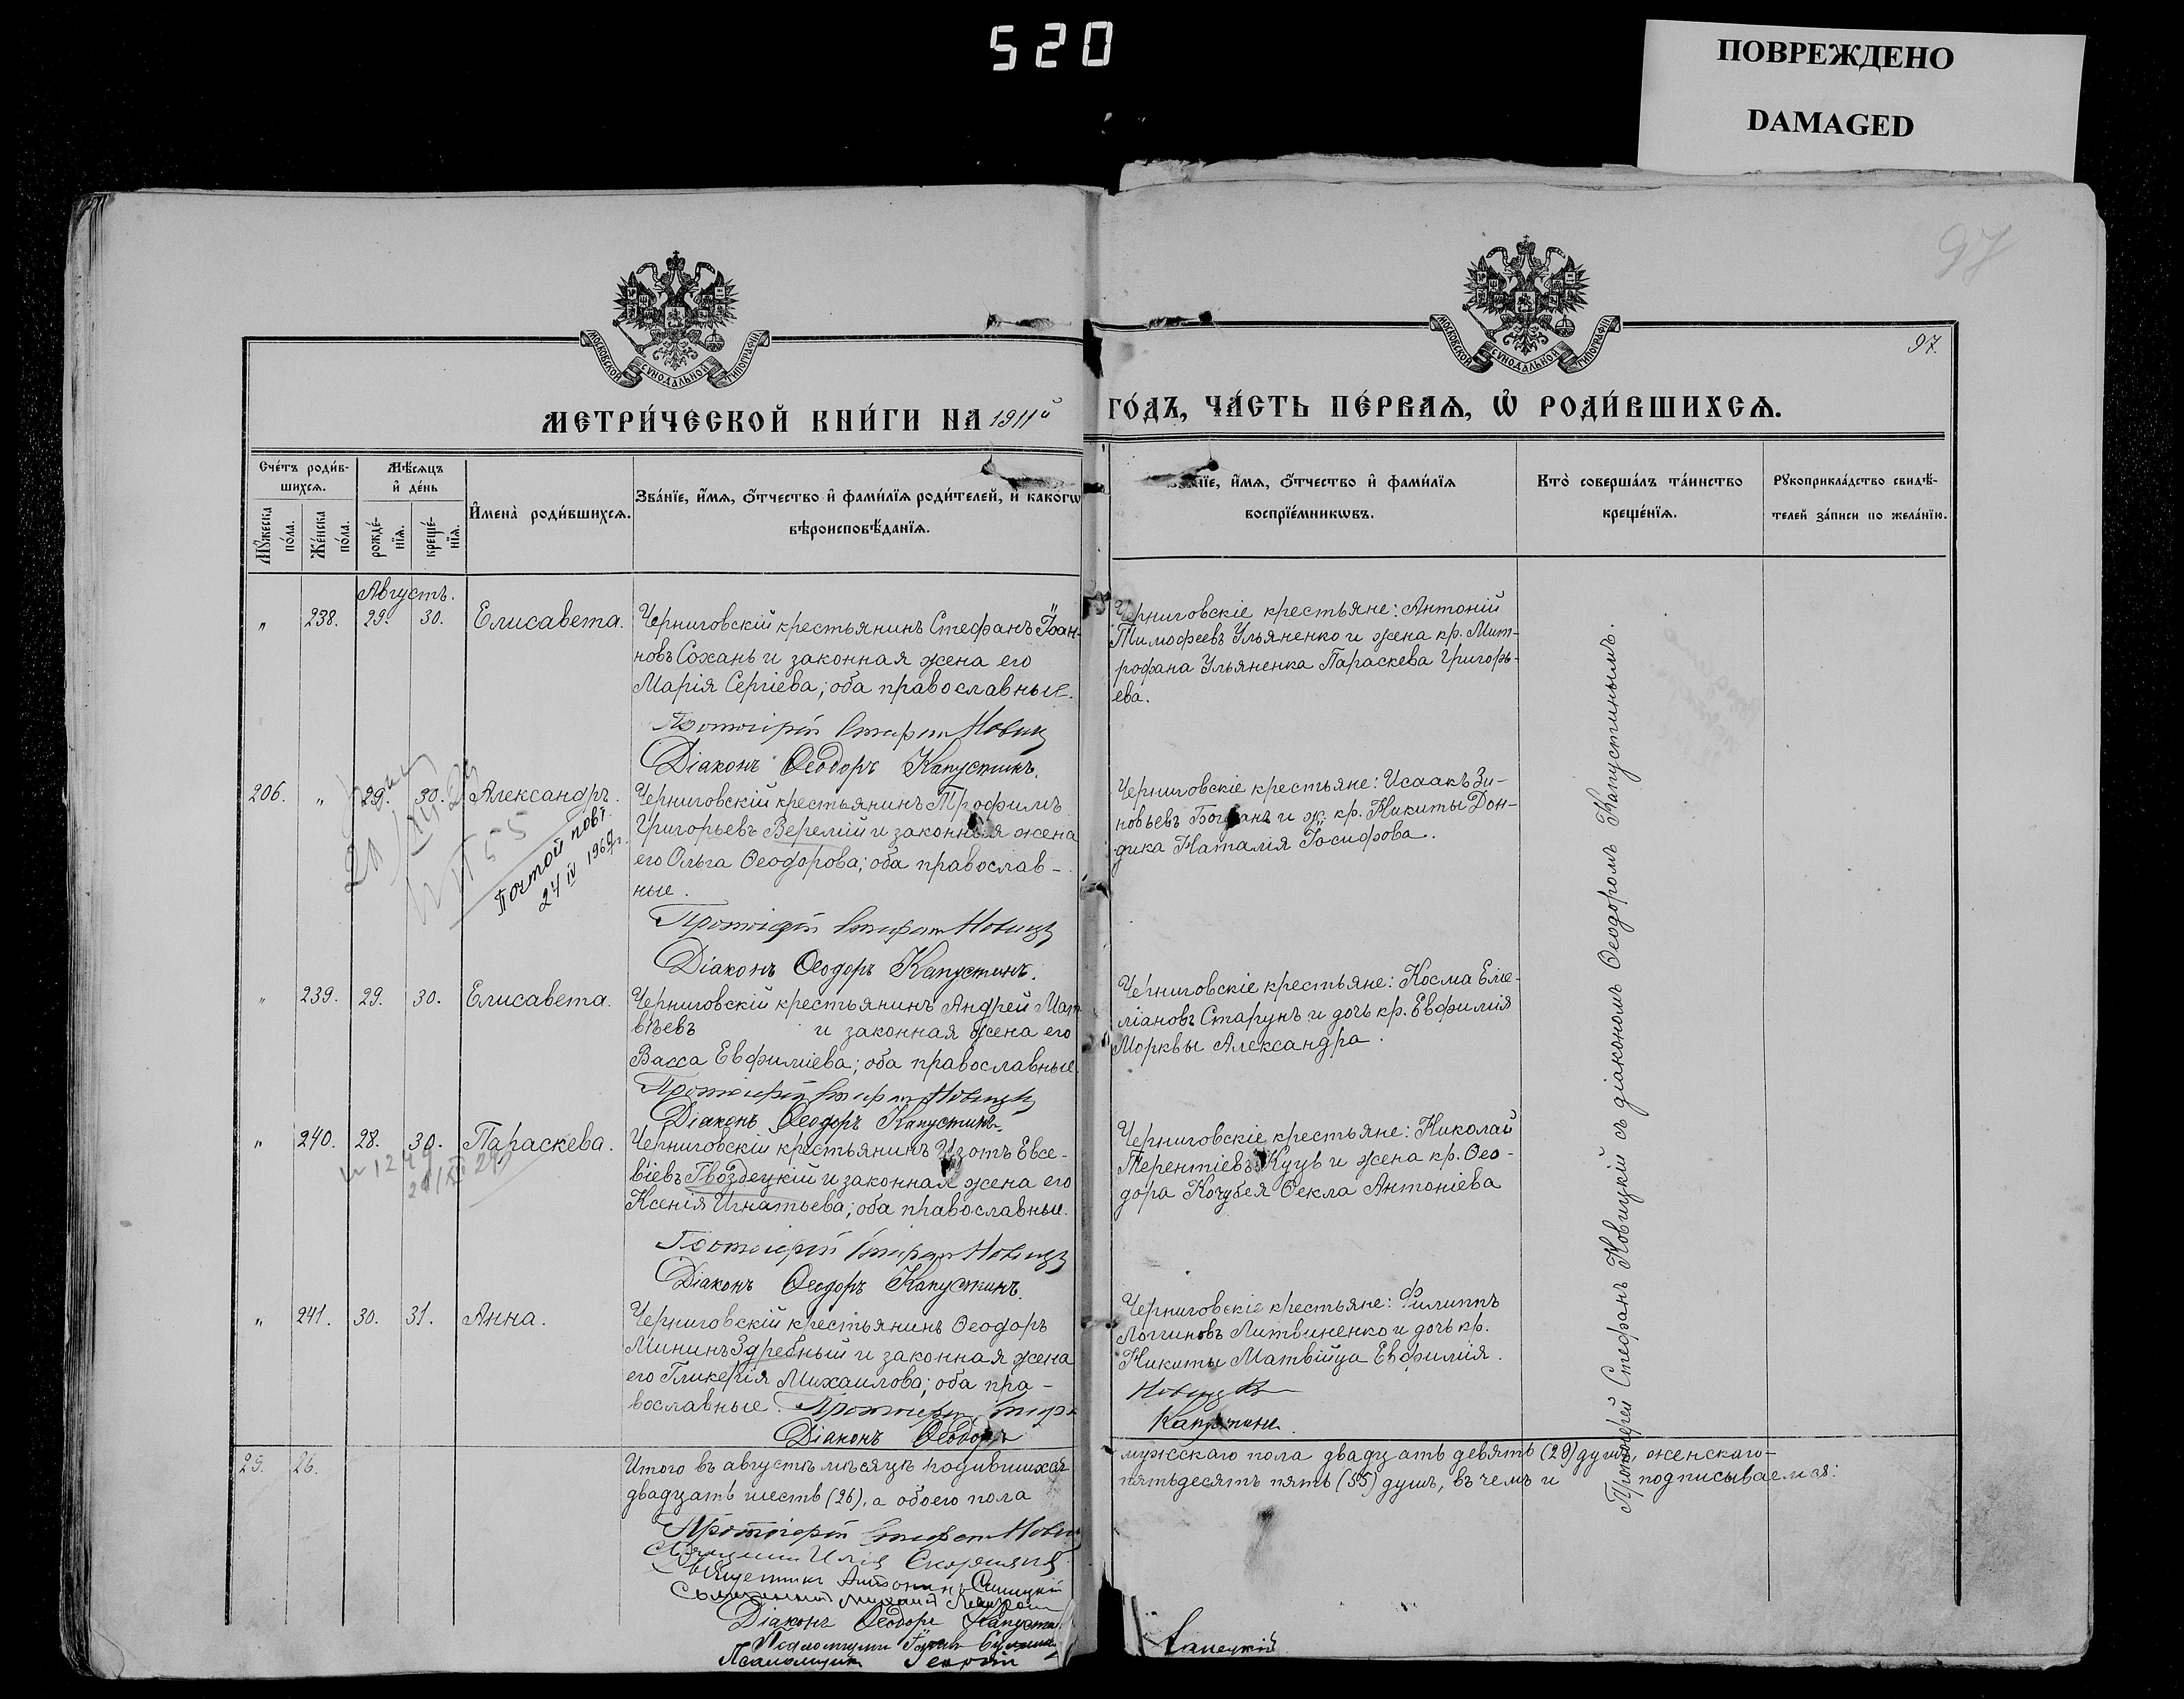 520
ПОВРЕЖДЕНО
DAMAGED
97
97.
МОСКОВСКОЙ СУНОДАЛЬНОЙ ТИПОГРАФІИ
МОСКОВСКОЙ СУНОДАЛЬНОЙ ТИПОГРАФІИ
МЕТРИ́ЧЕСКОЙ КНИ́ГИ НА 1911й ГО́ДЪ, ЧА́СТЬ ПЕ́РВАЯ, Ѡ҆ РОДИ́ВШИХСЯ.
Сче́тъ роди́в-
шихся.
Мꙋжеска по́ла.
Же́нска по́ла.
Мѣ́сяцъ
и҆ де́нь
рожде́-
нїя.
креще́-
нїя.
И҆мена̀ роди́вшихся.
Зва́нїе, и҆́мя, ѻ҆́тчество и҆ фами́лїя роди́телей, и҆ како́гѡ
вѣроисповѣ́данїя.
Зва́нїе, и҆́мя, ѻ҆́тчество и҆ фами́лїя
воспрїе́мникѡвъ.
Кто̀ соверша́лъ та́инство
креще́нїя.
Рꙋкоприкла́дство свидѣ́-
телей за́писи по жела́нїю.
Августъ.
" 238. 29. 30. Елисавета.
Черниговскій крестьянинъ Стефанъ Іоан-
новъ Сохань и законная жена его
Марія Сергіева; оба православные.
Протоіерей Стефан Новиц
Діаконъ Ѳеодоръ Капустинъ.
Черниговскіе крестьяне: Антоній
Тимофеевъ Ульяненко и жена кр. Мит-
рофана Ульяненка Параскева Григорь-
ева.
206. " 29. 30. Александръ.
Почтой повт.
24 IV 1969г.
Черниговскій крестьянинъ Трофимъ
Григорьевъ Веремій и законная жена
его Ольга Ѳеодорова; оба православ-
ные.
Протоіерей Стефан Новицк
Діаконъ Ѳеодоръ Капустинъ.
Черниговскіе крестьяне: Исаакъ Зи-
новьевъ Богданъ и ж. кр. Никиты Дон-
дика Наталія Іосифова.
" 239. 29. 30. Елисавета.
Черниговскій крестьянинъ Андрей Мат-
вѣевъ и законная жена его
Васса Евфиміева; оба православные.
Протоіерей Стефан Новицкі
Діаконъ Ѳеодоръ Капустинъ.
Черниговскіе крестьяне: Косма Еме-
ліановъ Старунъ и дочь кр. Евфимія
Морквы Александра.
" 240. 28. 30. Параскева.
Черниговскій крестьянинъ Изотъ Евсе-
віевъ Гвоздецкій и законная жена его
Ксенія Игнатьева; оба православные.
Протоіерей Стефан Новицк
Діаконъ Ѳеодоръ Капустинъ.
Черниговскіе крестьяне: Николай
Терентіевъ Куць и жена кр. Ѳео-
дора Кочубея Ѳекла Антоніева
" 241. 30. 31. Анна.
Черниговскій крестьянинъ Ѳеодоръ
Мининъ Здребный и законная жена
его Гликерія Михаилова; оба пра-
вославные. Протоіерей Стефа
Діаконъ Ѳеодоръ
Черниговскіе крестьяне: Филиппъ
Логгиновъ Литвиненко и дочь кр.
Никиты Матвійца Евфимія.
Новицкі
Капустинъ.
Протоіерей Стефанъ Новицкій съ діакономъ Ѳеодоромъ Капустинымъ.
29. 26.
Итого въ августѣ мѣсяцѣ родившихся мужскаго пола двадцать девять (29) душъ, женскаго-
двадцать шесть (26), а обоего пола пятьдесятъ пять (55) душъ, въ чемъ и подписываемся:
Протоіерей Стефан Новиц
Священникъ Антонинъ Синицкій
Священникъ Михаил
Діаконъ Ѳеодоръ Капусти
Псаломщик Георгій